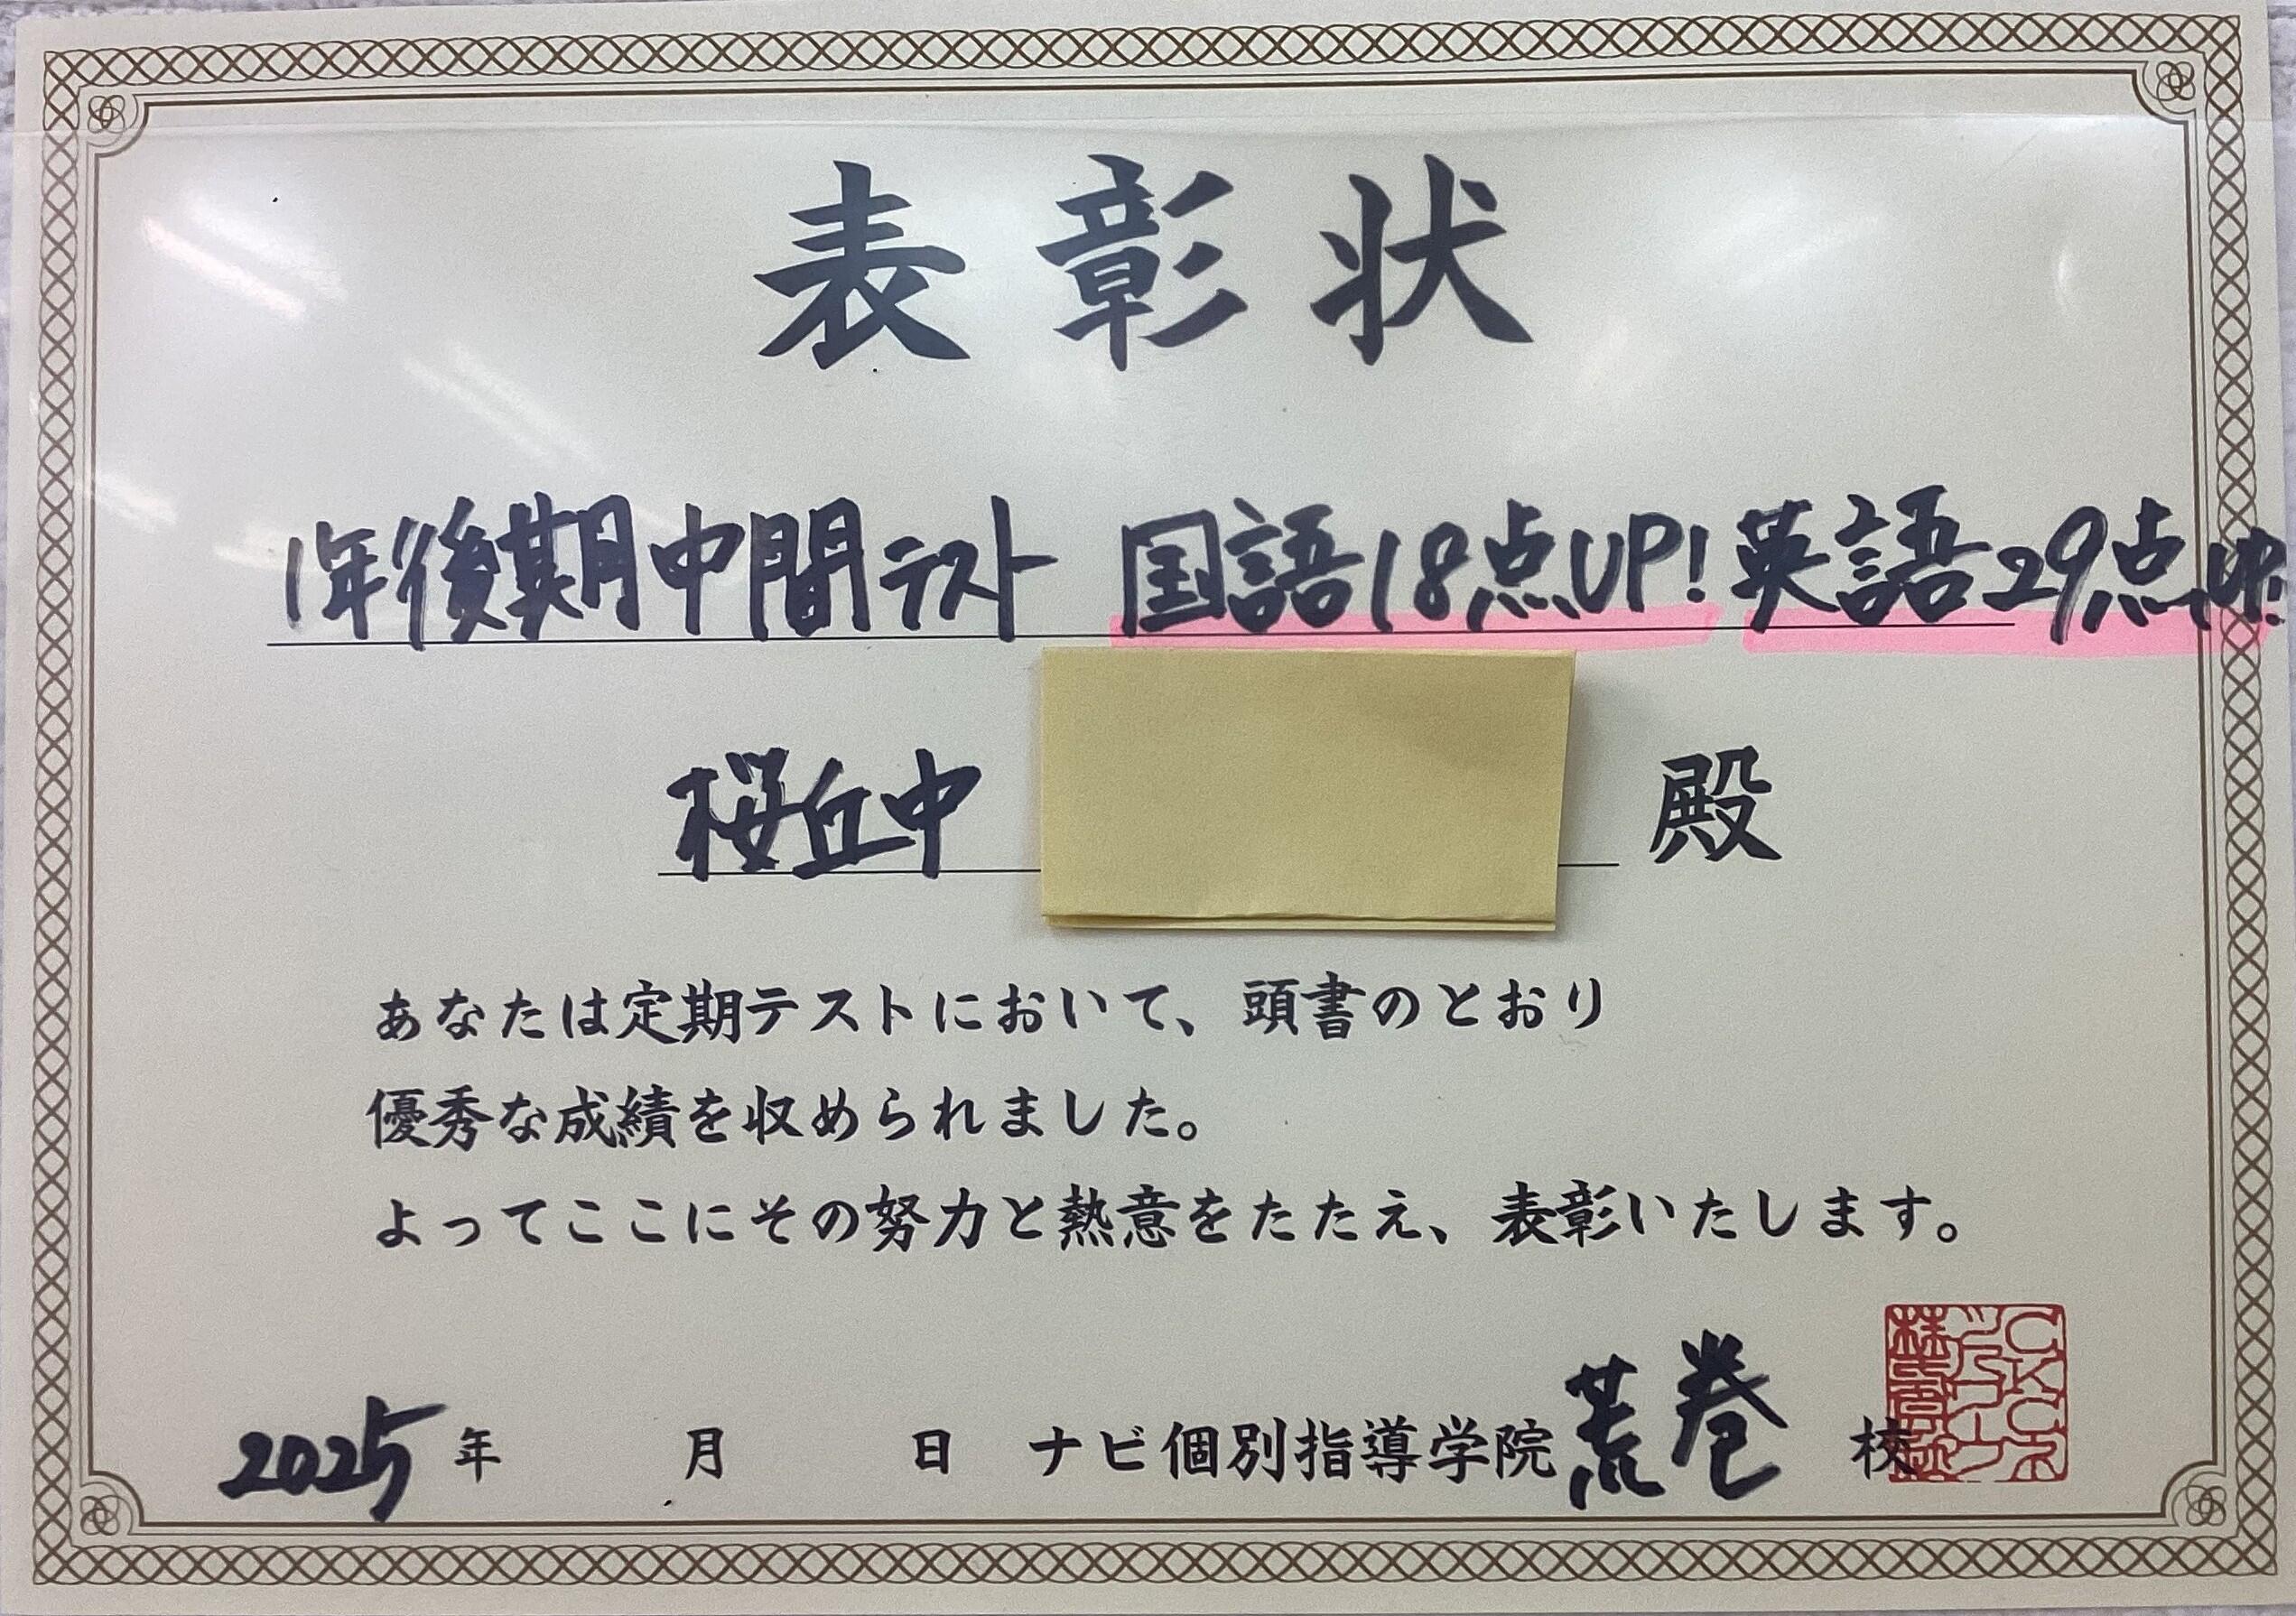 表彰状
1年後期中間テスト 国語18点UP! 英語29点UP!
桜丘中 殿
あなたは定期テストにおいて、頭書のとおり
優秀な成績を収められました。
よってここにその努力と熱意をたたえ、表彰いたします。
2025年 月 日 ナビ個別指導学院 荒巻 校